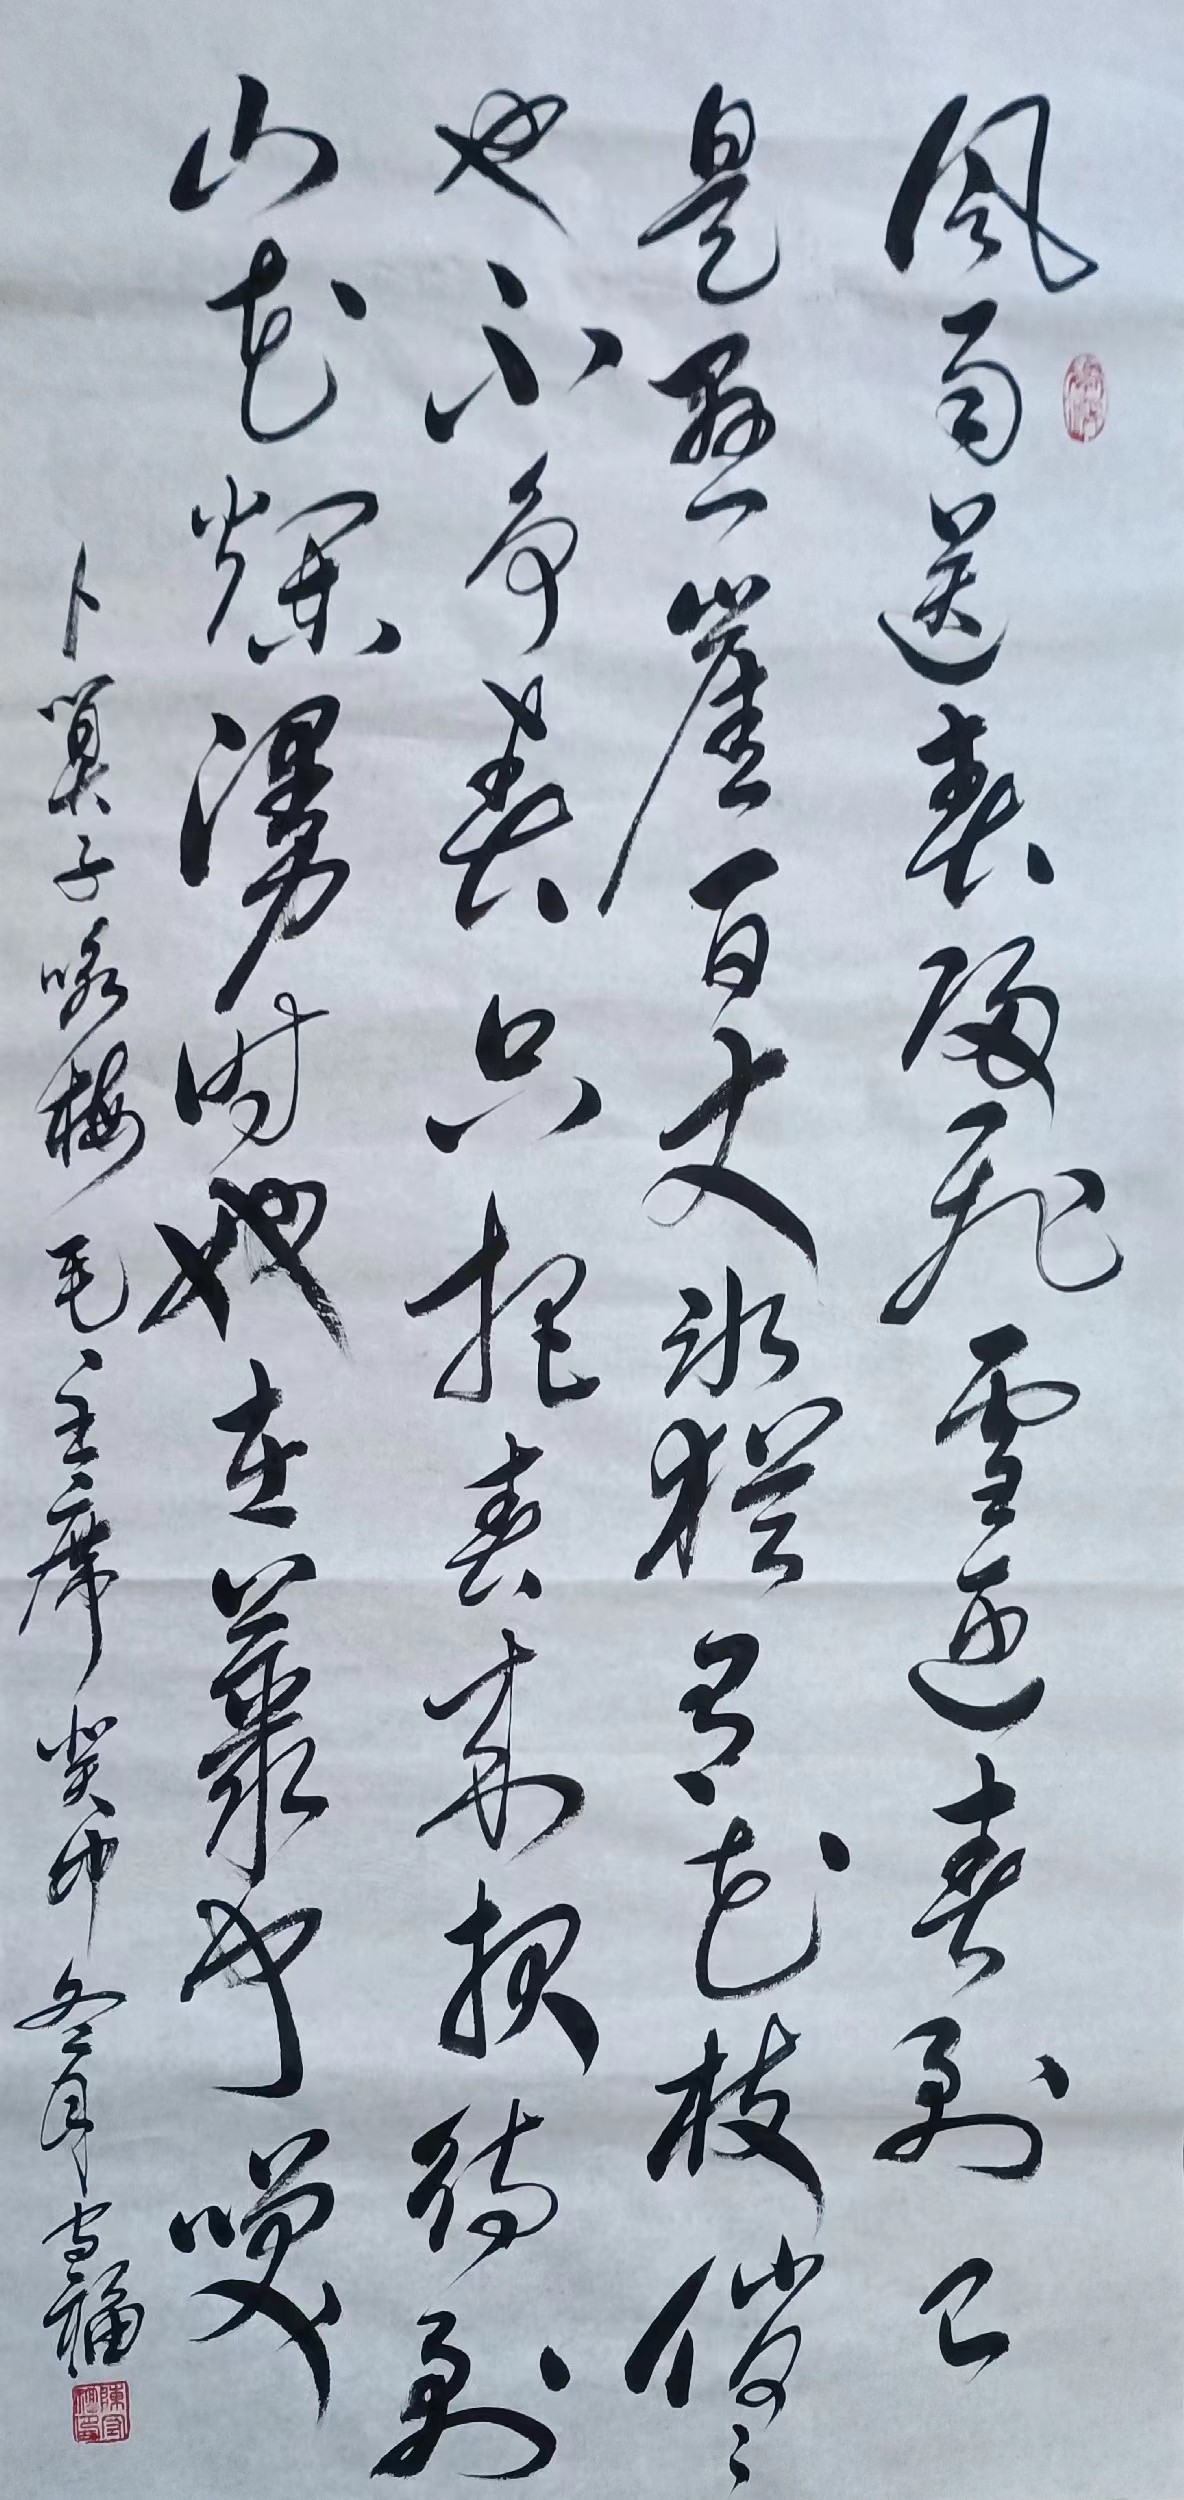 風雨送春歸飛雪迎春到已
是懸崖百丈冰猶有花枝俏〻
也不争春只把春来报待到
山花爛漫时她在叢中笑
卜算子咏梅毛主席癸卯冬月福